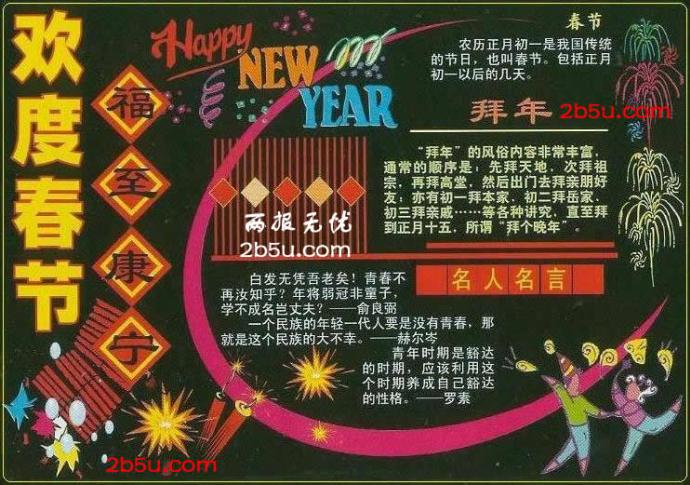 欢度春节
福至康宁
Happy
NEW
YEAR
春节
农历正月初一是我国传统
的节日，也叫春节。包括正月
初一以后的几天。
拜年
2b5u.com
“拜年”的风俗内容非常丰富，
通常的顺序是：先拜天地，次拜祖
宗，再拜高堂，然后出门去拜亲朋好
友；亦有初一拜本家，初二拜岳家，
初三拜亲戚……等各种讲究，直至拜
到正月十五，所谓“拜个晚年”。
两报无忧
2b5u.com
名人名言
白发无凭吾老矣！青春不
再汝知乎？年将弱冠非童子，
学不成名岂丈夫？——俞良弼
一个民族的年轻一代人要是没有青春，那
就是这个民族的大不幸。——赫尔岑
青年时期是豁达
的时期，应该利用这
个时期养成自己豁达
的性格。——罗素
2b5u.com
2b5u.com